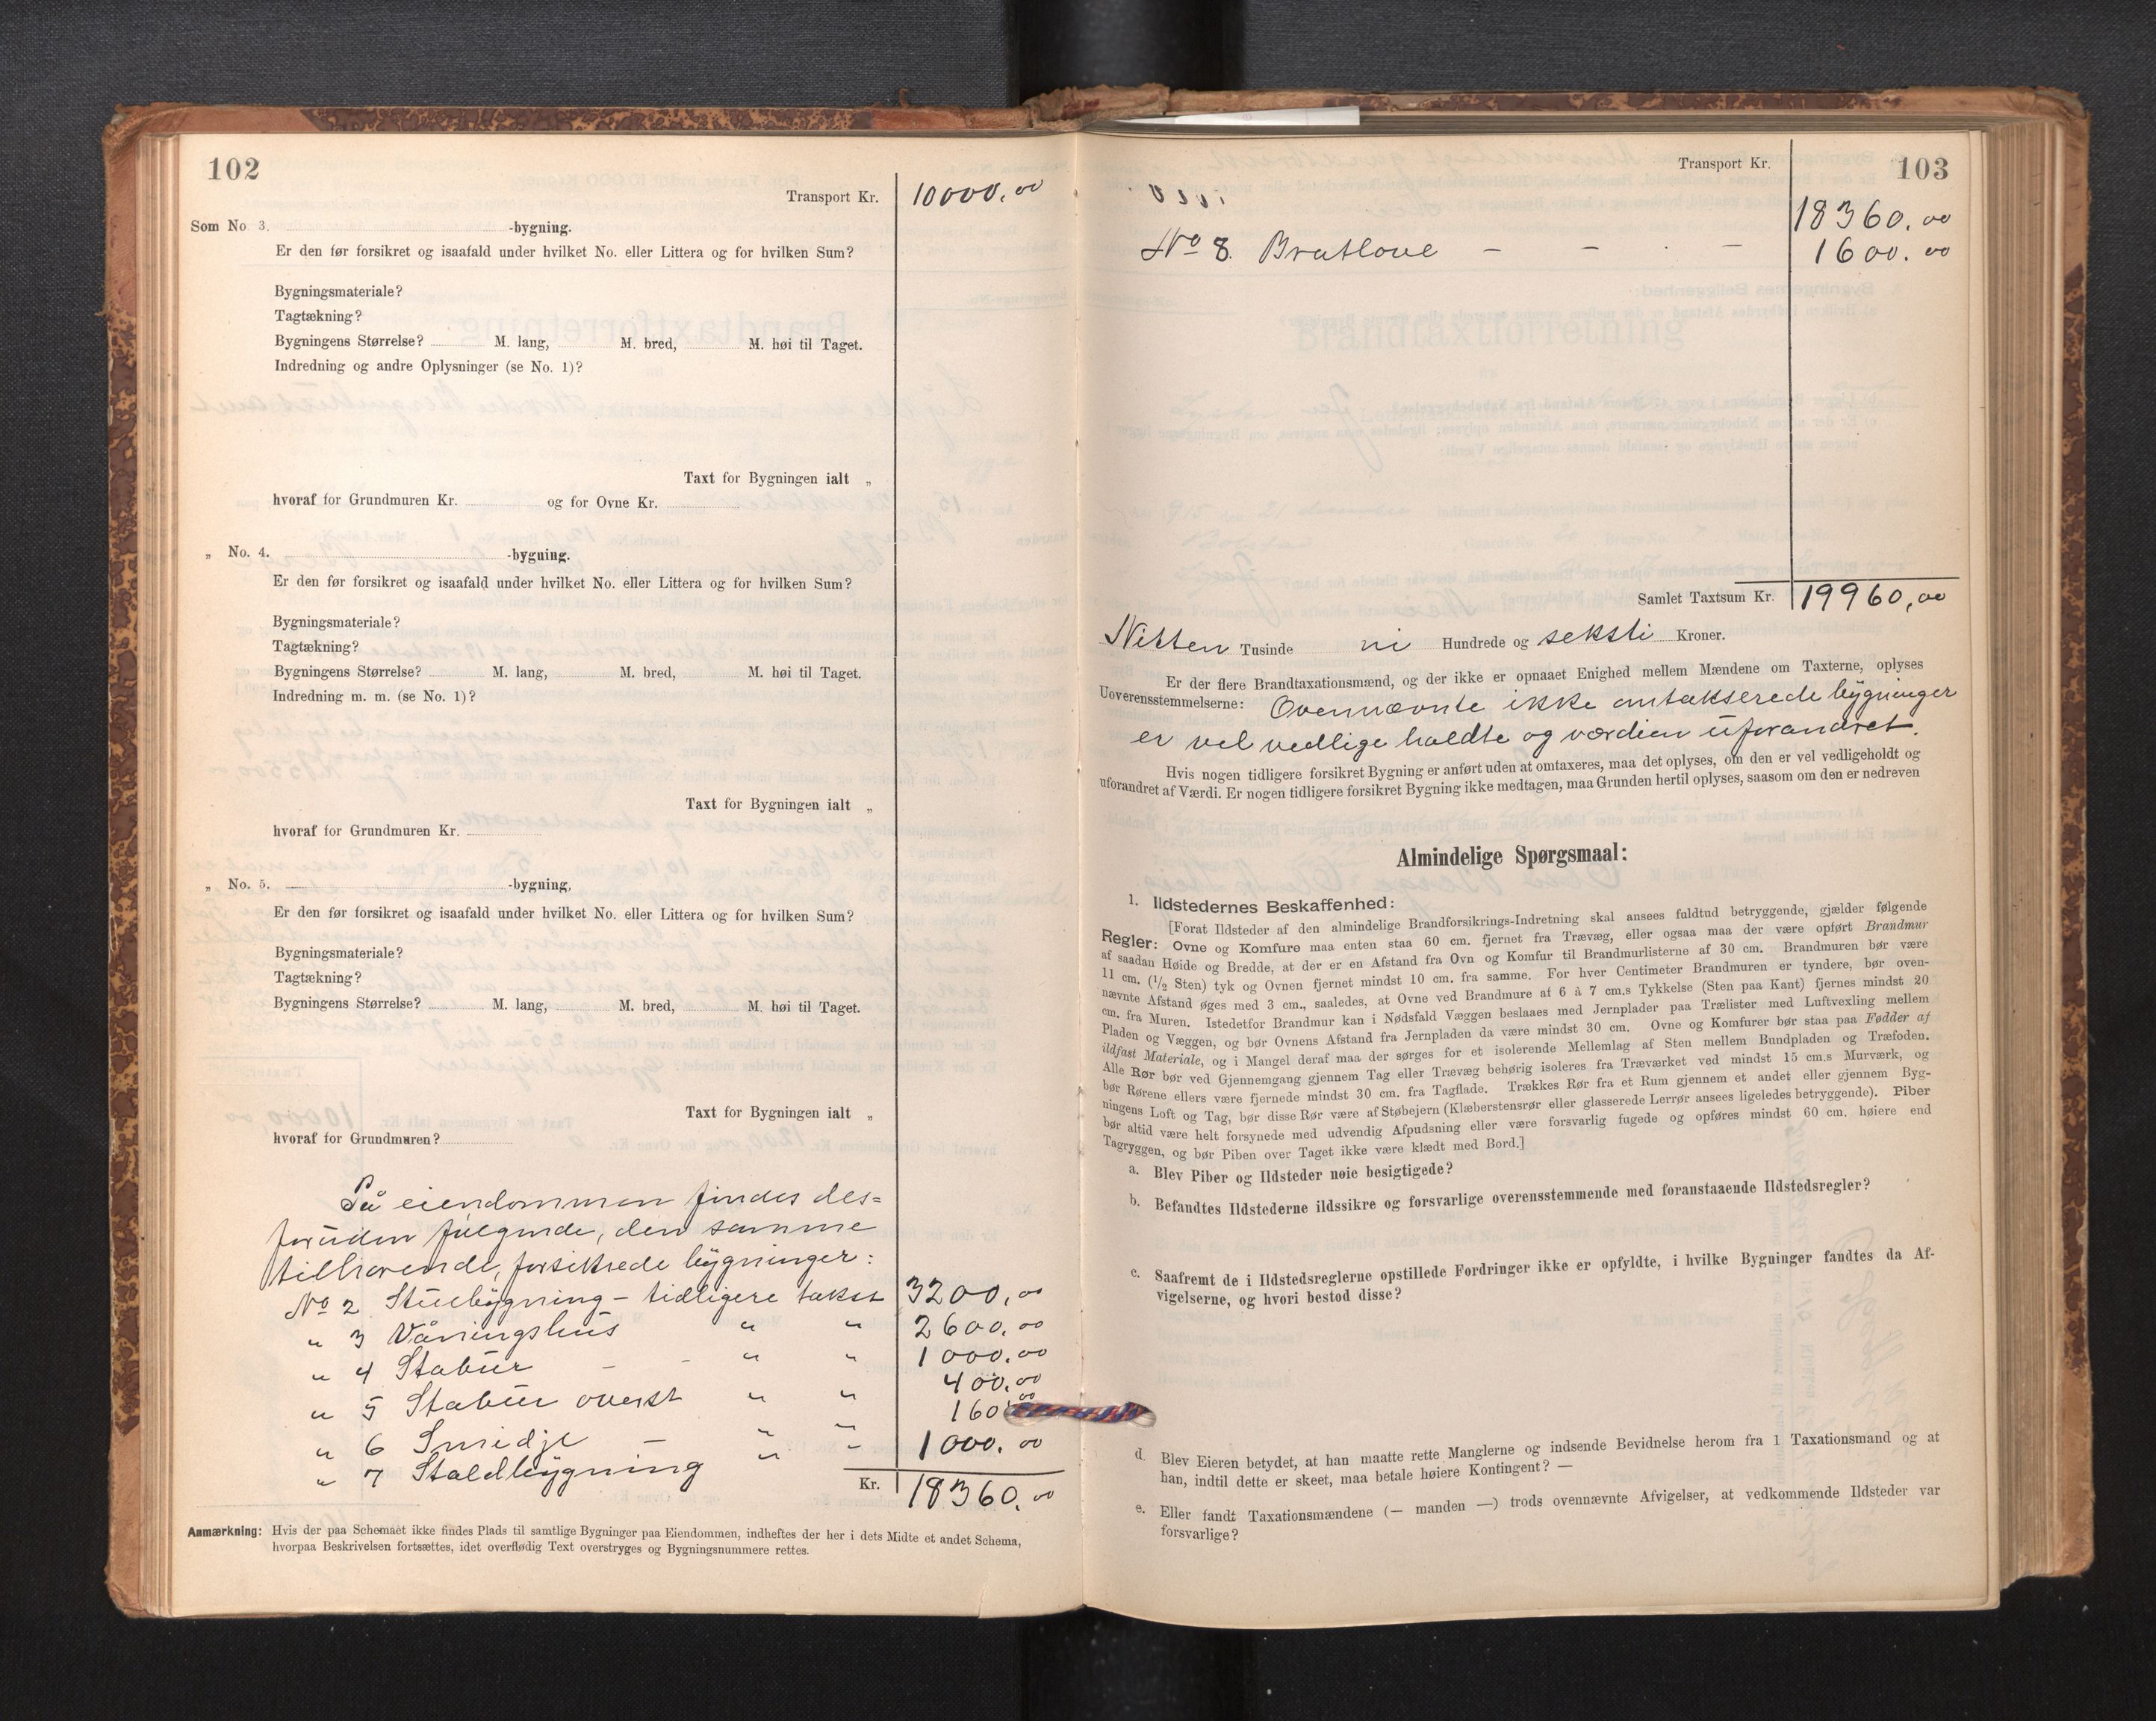 102
Transport Kr. 10000.00
Som No. 3, -bygning.
Er den før forsikret og isaafald under hvilket No. eller Littera og for hvilken Sum?
Bygningsmateriale?
Tagtækning?
Bygningens Størrelse? M. lang, M. bred, M. høi til Taget.
Indredning og andre Oplysninger (se No. 1)?
Taxt for Bygningen ialt „
hvoraf for Grundmuren Kr. og for Ovne Kr.
„ No. 4. -bygning.
Er den før forsikret og isaafald under hvilket No. eller Littera og for hvilken Sum?
Bygningsmateriale?
Tagtækning?
Bygningens Størrelse? M. lang, M. bred, M. høi til Taget.
Indredning m. m. (se No. 1)?
Taxt for Bygningen ialt „
hvoraf for Grundmuren Kr.
„ No. 5. -bygning,
Er den før forsikret og isaafald under hvilket No. eller Littera og for hvilken Sum?
Bygningsmateriale?
Tagtækning?
Bygningens Størrelse? M. lang, M. bred, M. høi til Taget.
Taxt for Bygningen ialt „
hvoraf for Grundmuren?
På eiendommen findes des=
foruden følgende, den samme
tilhørende, forsikrede bygninger:
No 2 Stuebygning – tidligere takst 3200,00
„ 3 Våningshus „ „ 2600,00
„ 4 Stabur – - „ „ 1000.00
„ 5 Stabur øverst „ „ 400.00
„ 6 Smidje – „ „ 160.00
„ 7 Staldbygning „ „ 1000.00
Kr. 18360.00
Anmærkning: Hvis der paa Schemaet ikke findes Plads til samtlige Bygninger paa Eiendommen, indheftes der her i dets Midte et andet Schema,
hvorpaa Beskrivelsen fortsættes, idet overflødig Text overstryges og Bygningsnummere rettes.
Transport Kr. 103
18360.00
No 8. Bratlöue – – - – 1600.00
Samlet Taxtsum Kr. 19960,00
Nitten Tusinde ni Hundrede og seksti Kroner.
Er der flere Brandtaxationsmænd, og der ikke er opnaaet Enighed mellem Mændene om Taxterne, oplyses
Uoverensstemmelserne: Ovennævnte ikke omtakserede bygninger
er vel vedlige holdte og værdien uforandret.
Hvis nogen tidligere forsikret Bygning er anført uden at omtaxeres, maa det oplyses, om den er vel vedligeholdt og
uforandret af Værdi. Er nogen tidligere forsikret Bygning ikke medtagen, maa Grunden hertil oplyses, saasom om den er nedreven
Almindelige Spørgsmaal:
1. Ildstedernes Beskaffenhed:
[Forat Ildsteder af den almindelige Brandforsikrings-Indretning skal ansees fuldtud betryggende, gjælder følgende
Regler: Ovne og Komfure maa enten staa 60 cm. fjernet fra Trævæg, eller ogsaa maa der være opført Brandmur
af saadan Høide og Bredde, at der er en Afstand fra Ovn og Komfur til Brandmurlisterne af 30 cm. Brandmuren bør være
11 cm. (1/2 Sten) tyk og Ovnen fjernet mindst 10 cm. fra samme. For hver Centimeter Brandmuren er tyndere, bør oven-
nævnte Afstand øges med 3 cm., saaledes, at Ovne ved Brandmure af 6 à 7 cm.s Tykkelse (Sten paa Kant) fjernes mindst 20
cm. fra Muren. Istedetfor Brandmur kan i Nødsfald Væggen beslaaes med Jernplader paa Trælister med Luftvexling mellem
Pladen og Væggen, og bør Ovnens Afstand fra Jernpladen da være mindst 30 cm. Ovne og Komfurer bør staa paa Fødder af
ildfast Materiale, og i Mangel deraf maa der sørges for et isolerende Mellemlag af Sten mellem Bundpladen og Træfoden.
Alle Rør bør ved Gjennemgang gjennem Tag eller Trævæg behørig isoleres fra Træværket ved mindst 15 cm.s Murværk, og
bør Rørene ellers være fjernede mindst 30 cm. fra Tagflade. Trækkes Rør fra et Rum gjennem et andet eller gjennem Byg-
ningens Loft og Tag, bør disse Rør være af Støbejern (Klæberstensrør eller glasserede Lerrør ansees ligeledes betryggende). Piber
bør altid være helt forsynede med udvendig Afpudsning eller være forsvarlig fugede og opføres mindst 60 cm. høiere end
Tagryggen, og bør Piben over Taget ikke være klædt med Bord.]
a. Blev Piber og Ildsteder nøie besigtigede?
b. Befandtes Ildstederne ildssikre og forsvarlige overensstemmende med foranstaaende Ildstedsregler?
c. Saafremt de i Ildstedsreglerne opstillede Fordringer ikke er opfyldte, i hvilke Bygninger fandtes da Af-
vigelserne, og hvori bestod disse?
d. Blev Eieren betydet, at han maatte rette Manglerne og indsende Bevidnelse herom fra 1 Taxationsmand og at
han, indtil dette er skeet, maa betale høiere Kontingent? —
e. Eller fandt Taxationsmændene (— manden —) trods ovennævnte Afvigelser, at vedkommende Ildsteder var
forsvarlige?